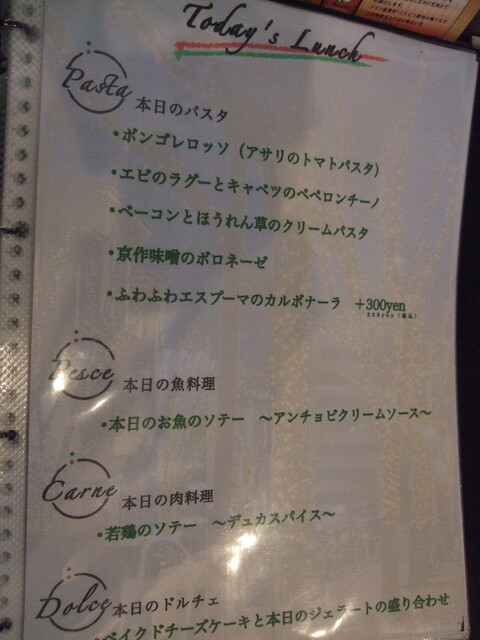 Today's Lunch
Pasta 本日のパスタ
・ボンゴレロッソ（アサリのトマトパスタ）
・エビのラグーとキャベツのペペロンチーノ
・ベーコンとほうれん草のクリームパスタ
・京作味噌のボロネーゼ
・ふわふわエスプーマのカルボナーラ ＋300yen
Pesce 本日の魚料理
・本日のお魚のソテー ～アンチョビクリームソース～
Carne 本日の肉料理
・若鶏のソテー ～デュカスパイス～
Dolce 本日のドルチェ
・ベイクドチーズケーキと本日のジェラートの盛り合わせ